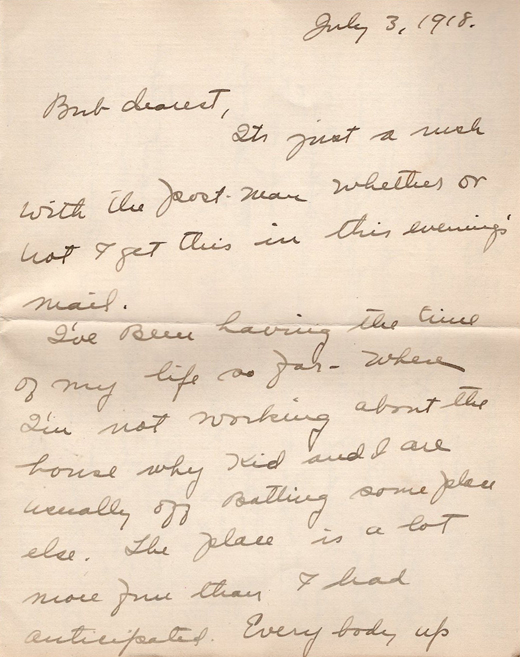 July 3, 1918.
Bub dearest,
Its just a rush
with the post-man whether or
not I get this in this evening's
mail.
I've Been having the time
of my life so far - When
I'm not working about the
house why Kid and I are
usually off Batting some place
else. The place is a lot
more fun than I had
anticipated. Every body up